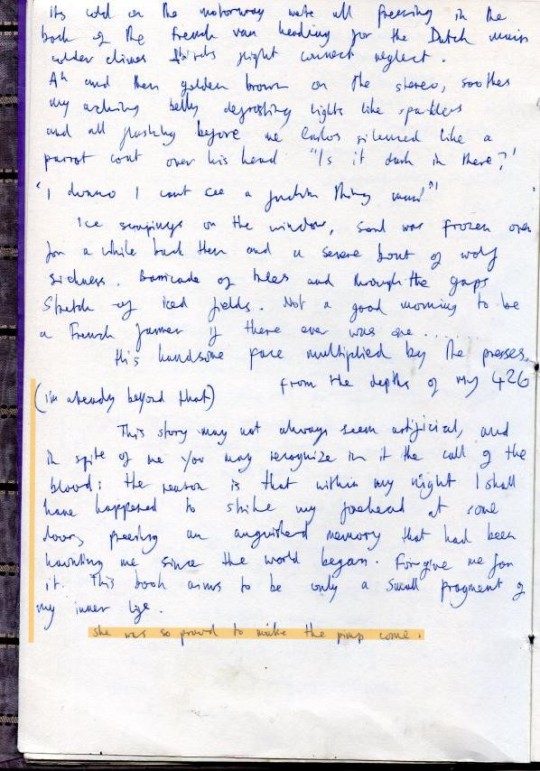 its cold on the motorway wate all freezing in the
back of the french van heading for the Dutch
climes birds night connect neglect.
Ah and then golden brown on the stereo, soothes
my aching belly lights like sparklers
and all flashing before me Carlos silenced like a
parrot coat over his head "Is it dark in there?"
"I dunno I cant see a fuckin thing man"
Ice on the window, Soul was frozen over
for a while back then and a severe bout of wolf
sickness. Barricade of trees and through the gaps
Stretch of iced fields. Not a good morning to be
a French farmer if there ever was one....
this handsome face multiplied by the presses.
(im already beyond that) from the depths of my 426
This story may not always seem artificial, and
in spite of me you may recognize in it the call of the
blood: the reason is that within my night I shall
have happened to strike my forehead at some
door, freeing an anguished memory that had been
haunting me since the world began. Forgive me for
it. This book aims to be only a small fragment of
my inner life.
she was so proud to make the pimp come.